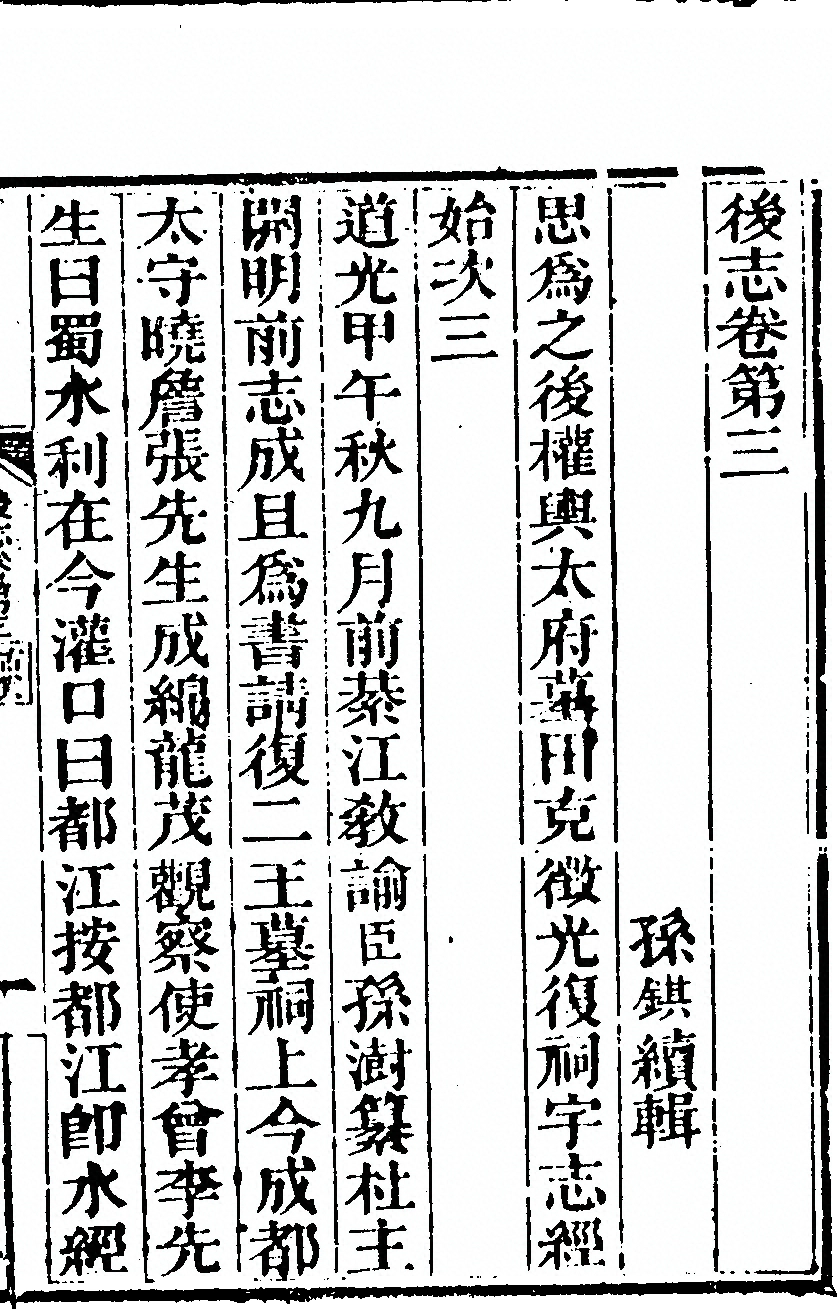 後志卷第三
孫錤續輯
思爲之後權輿太府墓田克徵光復祠宇志經
始次三
道光甲午秋九月前綦江敎諭臣孫澍纂杜主
開明前志成且爲書請復二王墓祠上今成都
太守曉詹張先生成綿龍茂觀察使孝曾李先
生曰蜀水利在今灌口曰都江按都江卽水經
後志卷第三